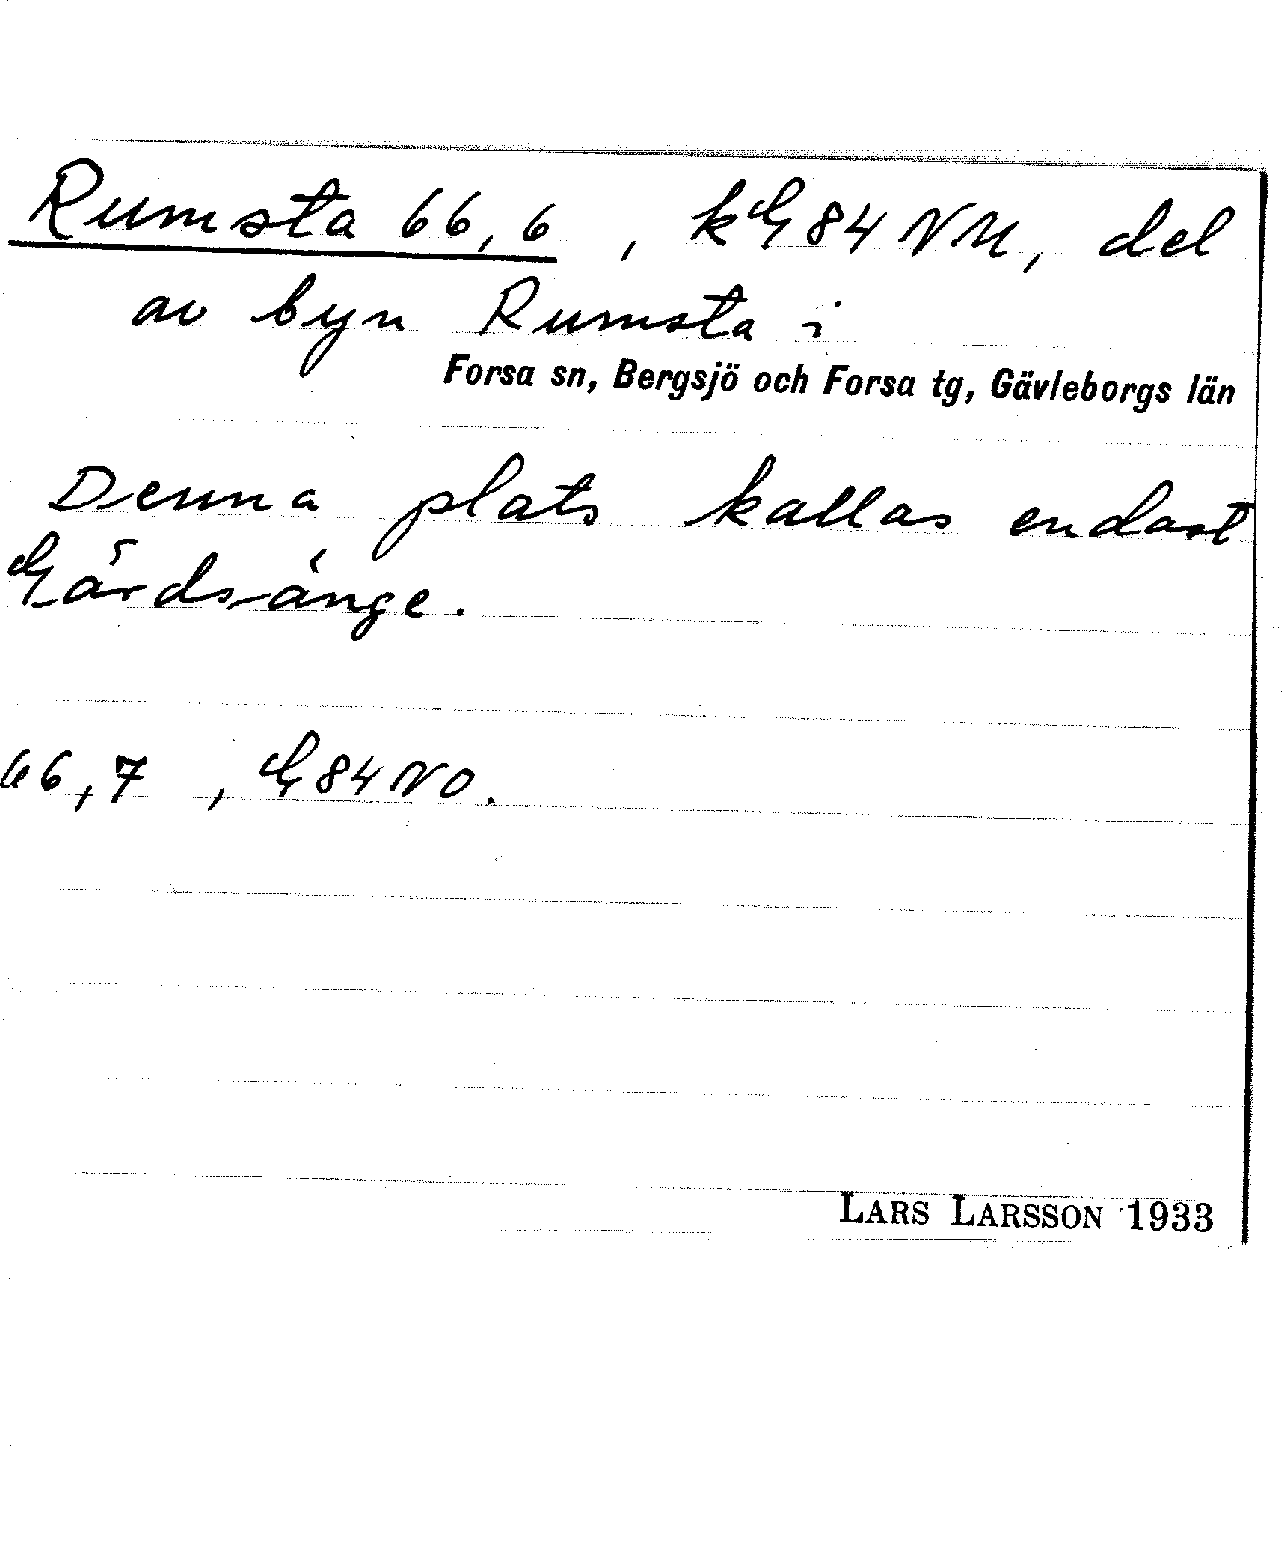 Rumsta 66,6 , kG84NM, del
av byn Rumsta i
Forsa sn, Bergsjö och Forsa tg, Gävleborgs län
Denna plats kallas endast
Gärdsänge.
66,7 , G84NO.
LARS LARSSON 1933